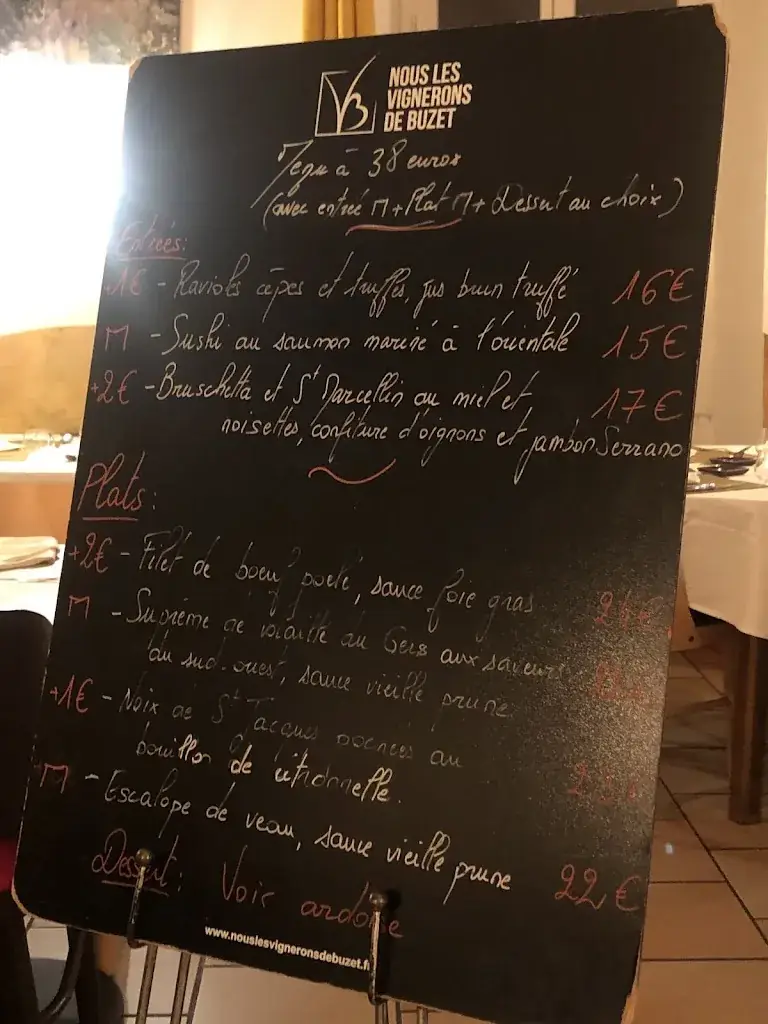 NOUS LES
VIGNERONS
DE BUZET
Menu à 38 euros
(avec entrée M + Plat M + Dessert au choix)
Entrées:
+1€ - Ravioles cèpes et truffes, jus brun truffé 16€
M - Sushi au saumon mariné à l'orientale 15€
+2€ - Bruschetta et St Marcellin au miel et 17€
noisettes, confiture d'oignons et jambon Serrano
Plats:
+2€ - Filet de boeuf poelé, sauce foie gras
M - Suprème de volaille du Gers aux saveurs
du sud-ouest, sauce vieille prune
+1€ - Noix de St Jacques pochées au
bouillon de citronnelle.
M - Escalope de veau, sauce vieille prune 22€
Dessert: Voir ardoise
www.nouslesvigneronsdebuzet.fr